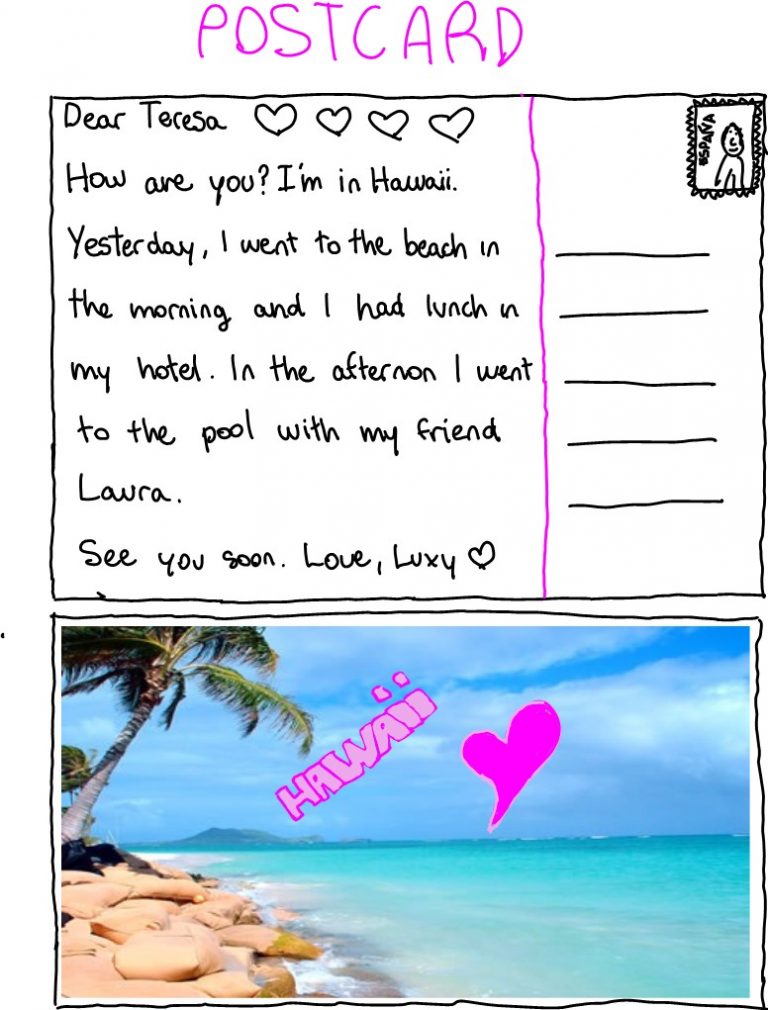 POSTCARD
Dear Teresa
ESPAÑA
How are you? I'm in Hawaii.
Yesterday, I went to the beach in
the morning and I had lunch in
my hotel. In the afternon I went
to the pool with my friend
Laura.
See you soon. Love, Luxy
HAWAII